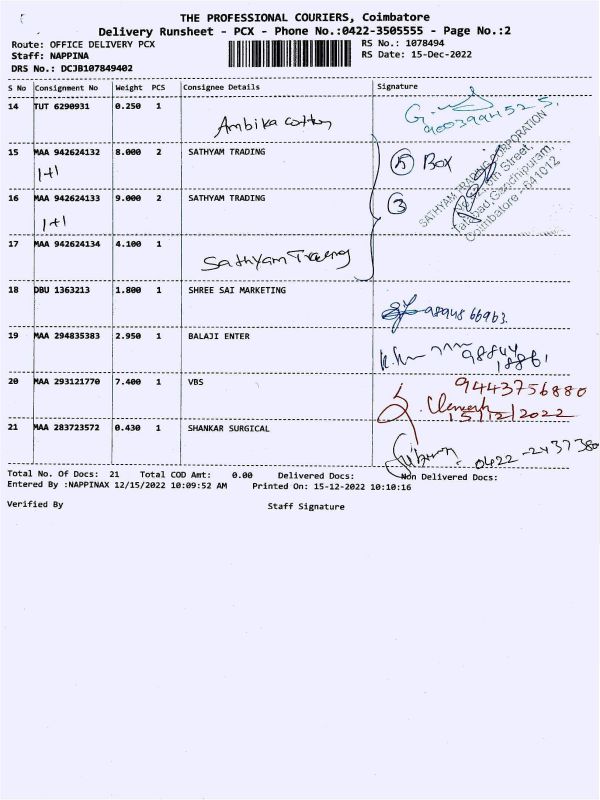 THE PROFESSIONAL COURIERS, Coimbatore
Delivery Runsheet - PCX - Phone No.:0422-3505555 - Page No.:2
Route: OFFICE DELIVERY PCX
RS No.: 1078494
Staff: NAPPINA
RS Date: 15-Dec-2022
DRS No.: DCJB107849402
S No Consignment No Weight PCS Consignee Details Signature
14 TUT 6290931 0.250 1
Ambika cotton
15 MAA 942624132 8.000 2 SATHYAM TRADING
1+1
5 Box
16 MAA 942624133 9.000 2 SATHYAM TRADING
1+1
3
SATHYAM TRADING CORPORATION
6th Street,
Tatabad, Gandhipuram,
Coimbatore - 641012
17 MAA 942624134 4.100 1
Sathyam Trading
18 DBU 1363213 1.800 1 SHREE SAI MARKETING
19 MAA 294835383 2.950 1 BALAJI ENTER
98844
18861
20 MAA 293121770 7.400 1 VBS
9443756880
15/12/2022
21 MAA 283723572 0.430 1 SHANKAR SURGICAL
0422-2437380
Total No. Of Docs: 21 Total COD Amt: 0.00 Delivered Docs: Non Delivered Docs:
Entered By :NAPPINAX 12/15/2022 10:09:52 AM Printed On: 15-12-2022 10:10:16
Verified By Staff Signature